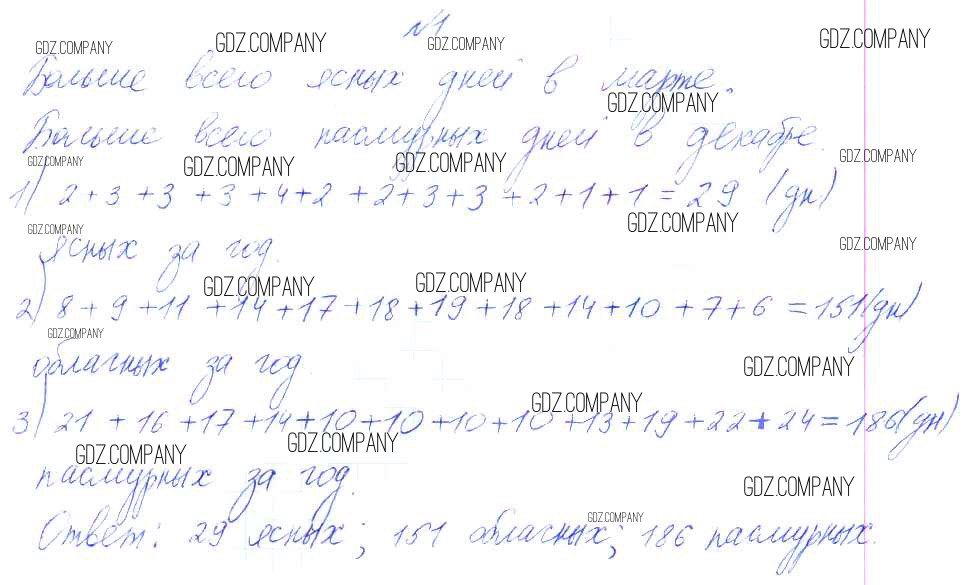 №1
GDZ.COMPANY GDZ.COMPANY GDZ.COMPANY GDZ.COMPANY
Больше всего ясных дней в марте.
GDZ.COMPANY
Больше всего пасмурных дней в декабре.
GDZ.COMPANY GDZ.COMPANY GDZ.COMPANY GDZ.COMPANY
1) 2+3+3+3+4+2+2+3+3+2+1+1=29 (дн)
GDZ.COMPANY
GDZ.COMPANY GDZ.COMPANY
ясных за год.
GDZ.COMPANY GDZ.COMPANY
2) 8+9+11+14+17+18+19+18+14+10+7+6=151(дн)
GDZ.COMPANY
облачных за год.
GDZ.COMPANY
GDZ.COMPANY
3) 21+16+17+14+10+10+10+10+13+19+22+24=186(дн)
GDZ.COMPANY GDZ.COMPANY
пасмурных за год.
GDZ.COMPANY
GDZ.COMPANY
Ответ: 29 ясных; 151 облачных; 186 пасмурных.